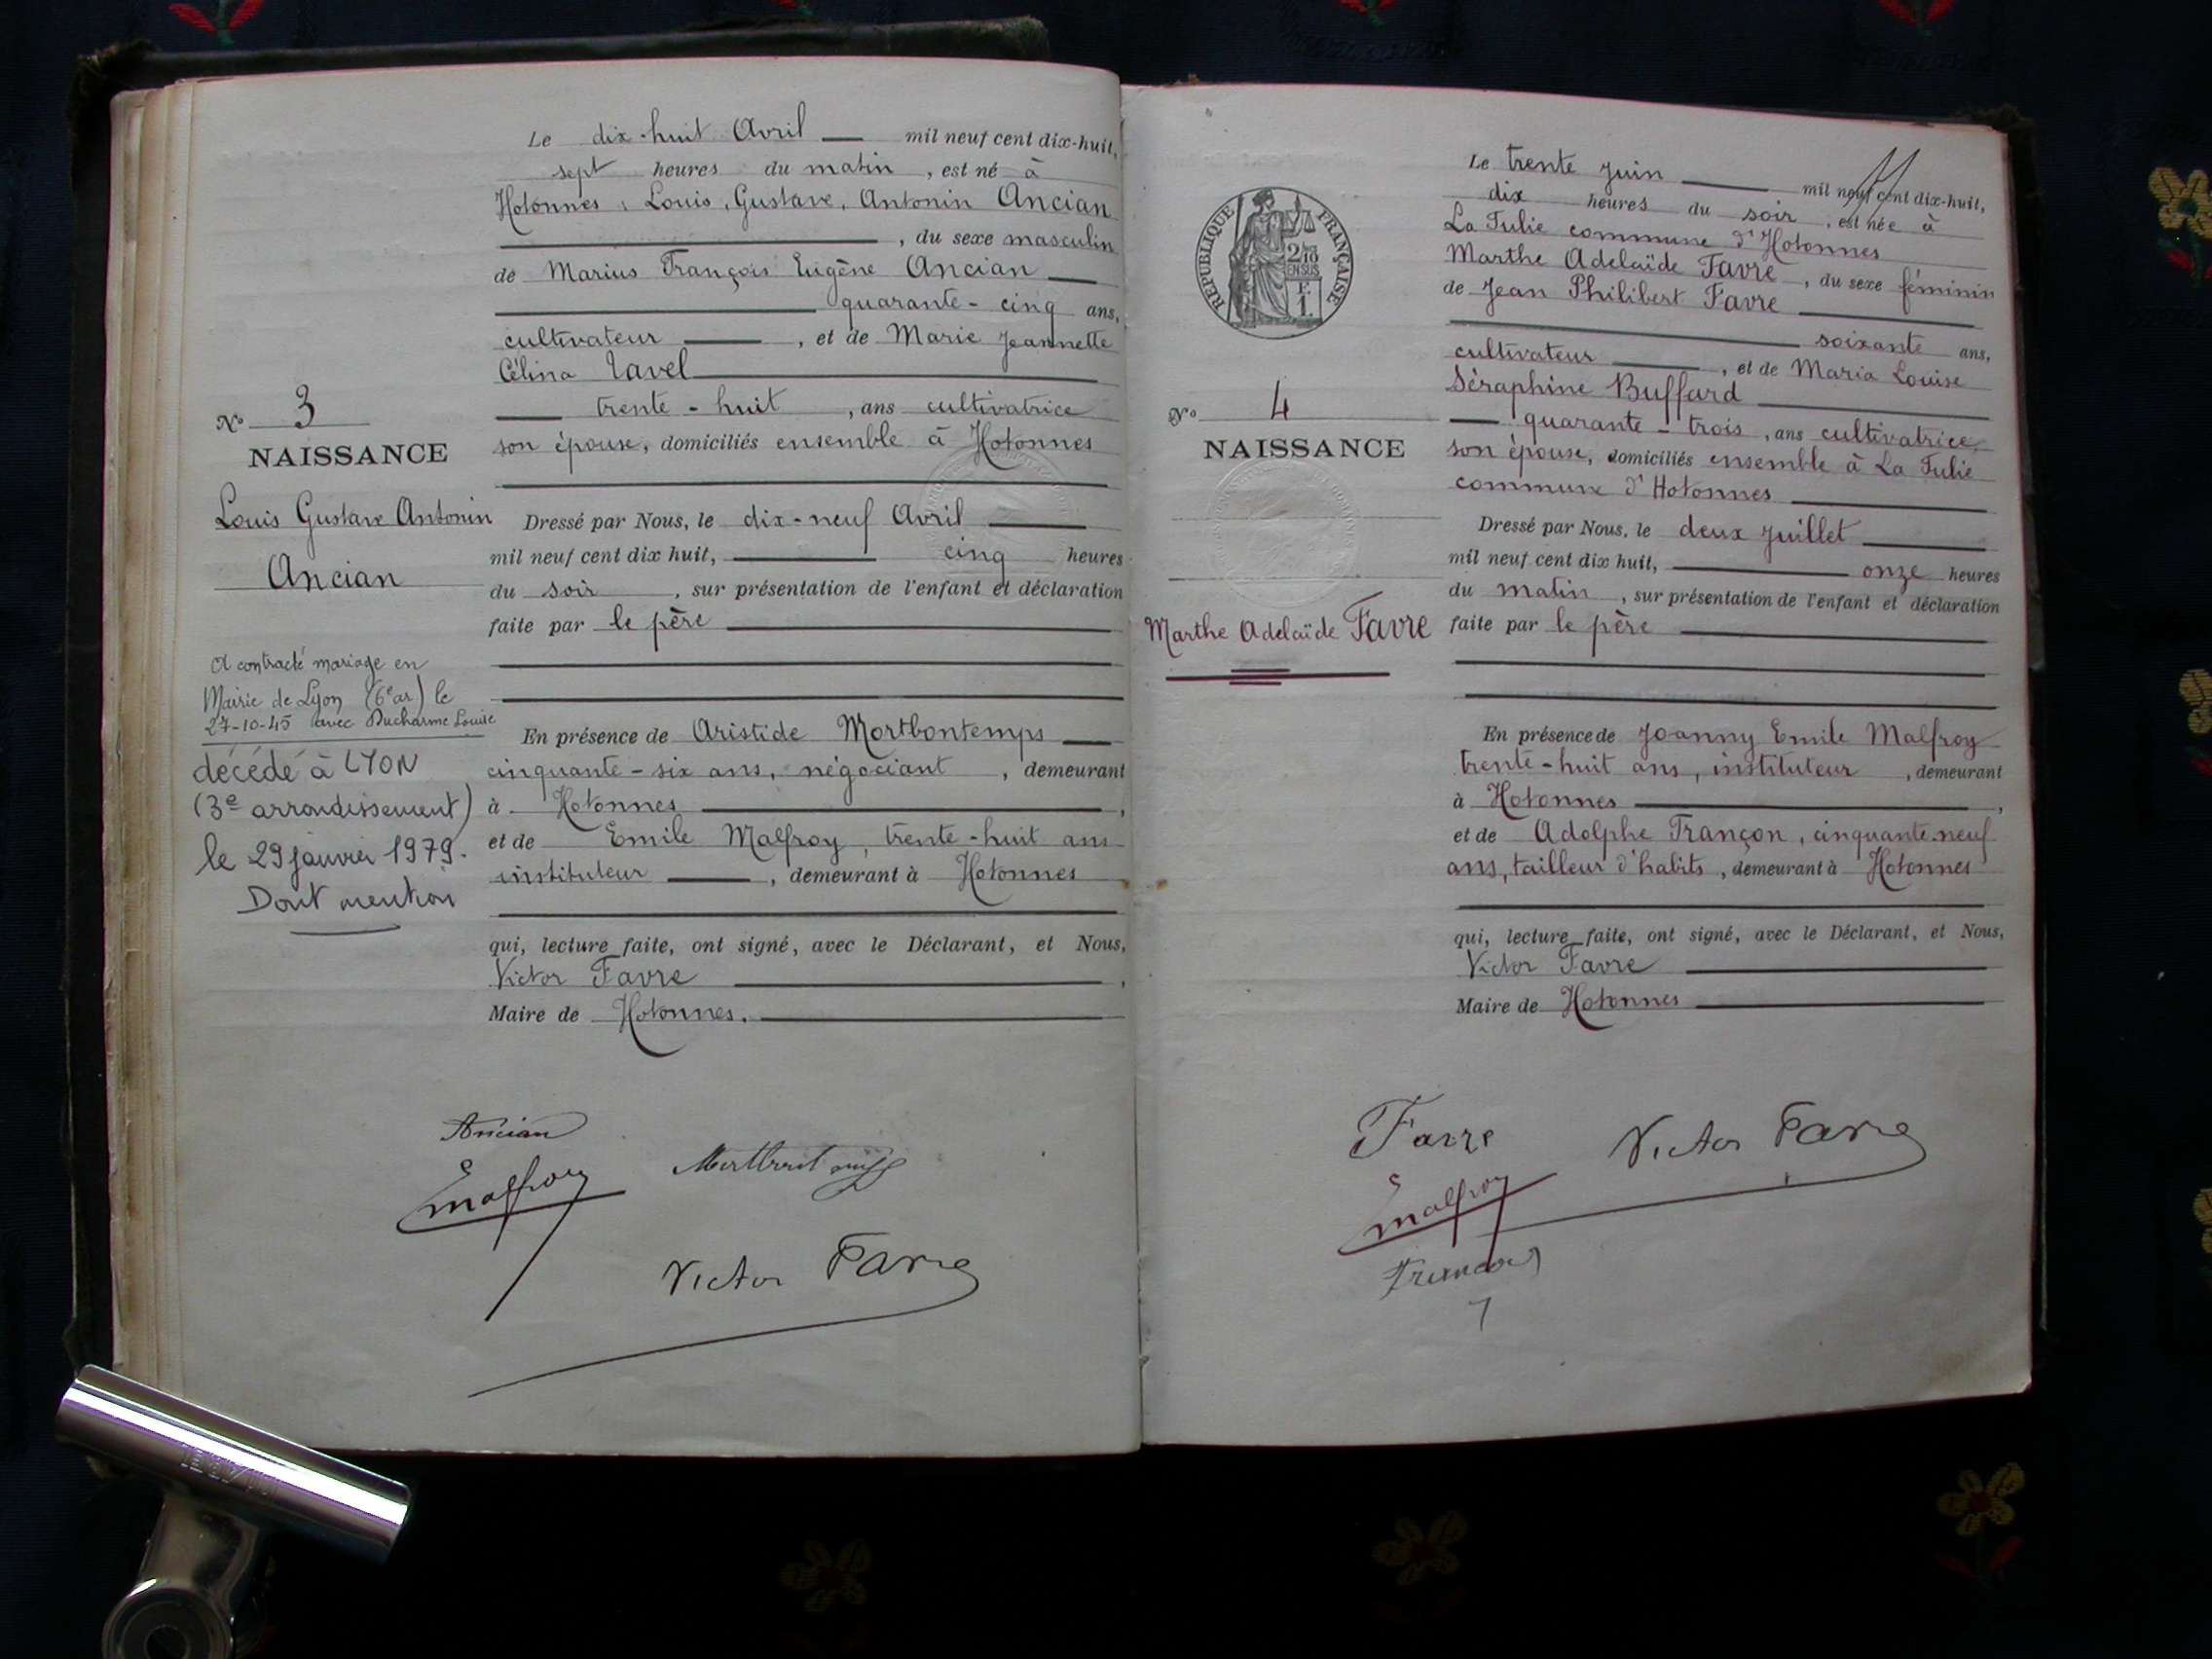 Le dix-huit Avril mil neuf cent dix-huit,
sept heures du matin, est né à
Hotonnes, Louis, Gustave, Antonin Ancian
, du sexe masculin
de Marius François Eugène Ancian
quarante-cinq ans,
cultivateur, et de Marie Jeannette
Célina Tavel
trente-huit, ans cultivatrice
son épouse, domiciliés ensemble à Hotonnes
No 3
NAISSANCE
Louis Gustave Antonin
Ancian
Dressé par Nous, le dix-neuf Avril
mil neuf cent dix huit, cinq heures
du soir, sur présentation de l'enfant et déclaration
faite par le père
A contracté mariage en
Mairie de Lyon (6e ar) le
27-10-45 avec Ducharme Louise
décédé à LYON
(3e arrondissement)
le 29 janvier 1979.
Dont mention
En présence de Aristide Mortbontemps
cinquante-six ans, négociant, demeurant
à Hotonnes,
et de Emile Malfroy, trente-huit ans
instituteur, demeurant à Hotonnes
qui, lecture faite, ont signé, avec le Déclarant, et Nous,
Victor Favre,
Maire de Hotonnes.
Ancian
EMalfroy
Victor Favre
RÉPUBLIQUE FRANÇAISE
2/10
EN SUS
F.
1.
No 4
NAISSANCE
Marthe Adelaïde Favre
Le trente Juin mil neuf cent dix-huit,
dix heures du soir, est née à
La Julie commune d'Hotonnes
Marthe Adelaïde Favre, du sexe féminin
de Jean Philibert Favre
soixante ans,
cultivateur, et de Maria Louise
Séraphine Buffard
quarante-trois, ans cultivatrice,
son épouse, domiciliés ensemble à La Julie
commune d'Hotonnes
Dressé par Nous, le deux Juillet
mil neuf cent dix huit, onze heures
du matin, sur présentation de l'enfant et déclaration
faite par le père
En présence de Joanny Emile Malfroy
trente-huit ans, instituteur, demeurant
à Hotonnes,
et de Adolphe Françon, cinquante-neuf
ans, tailleur d'habits, demeurant à Hotonnes
qui, lecture faite, ont signé, avec le Déclarant, et Nous,
Victor Favre
Maire de Hotonnes
Favre
Victor Favre
EMalfroy